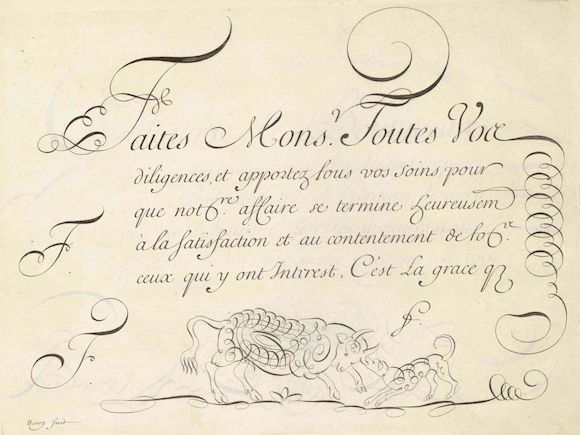 Faites Monsr. Toutes Voce
diligences, et apportez tous vos soins pour
que notre. affaire se termine heureusem
à la satisfaction et au contentement de
ceux qui y ont Intrrest, C'est La grace q
F
F
Berey fecit